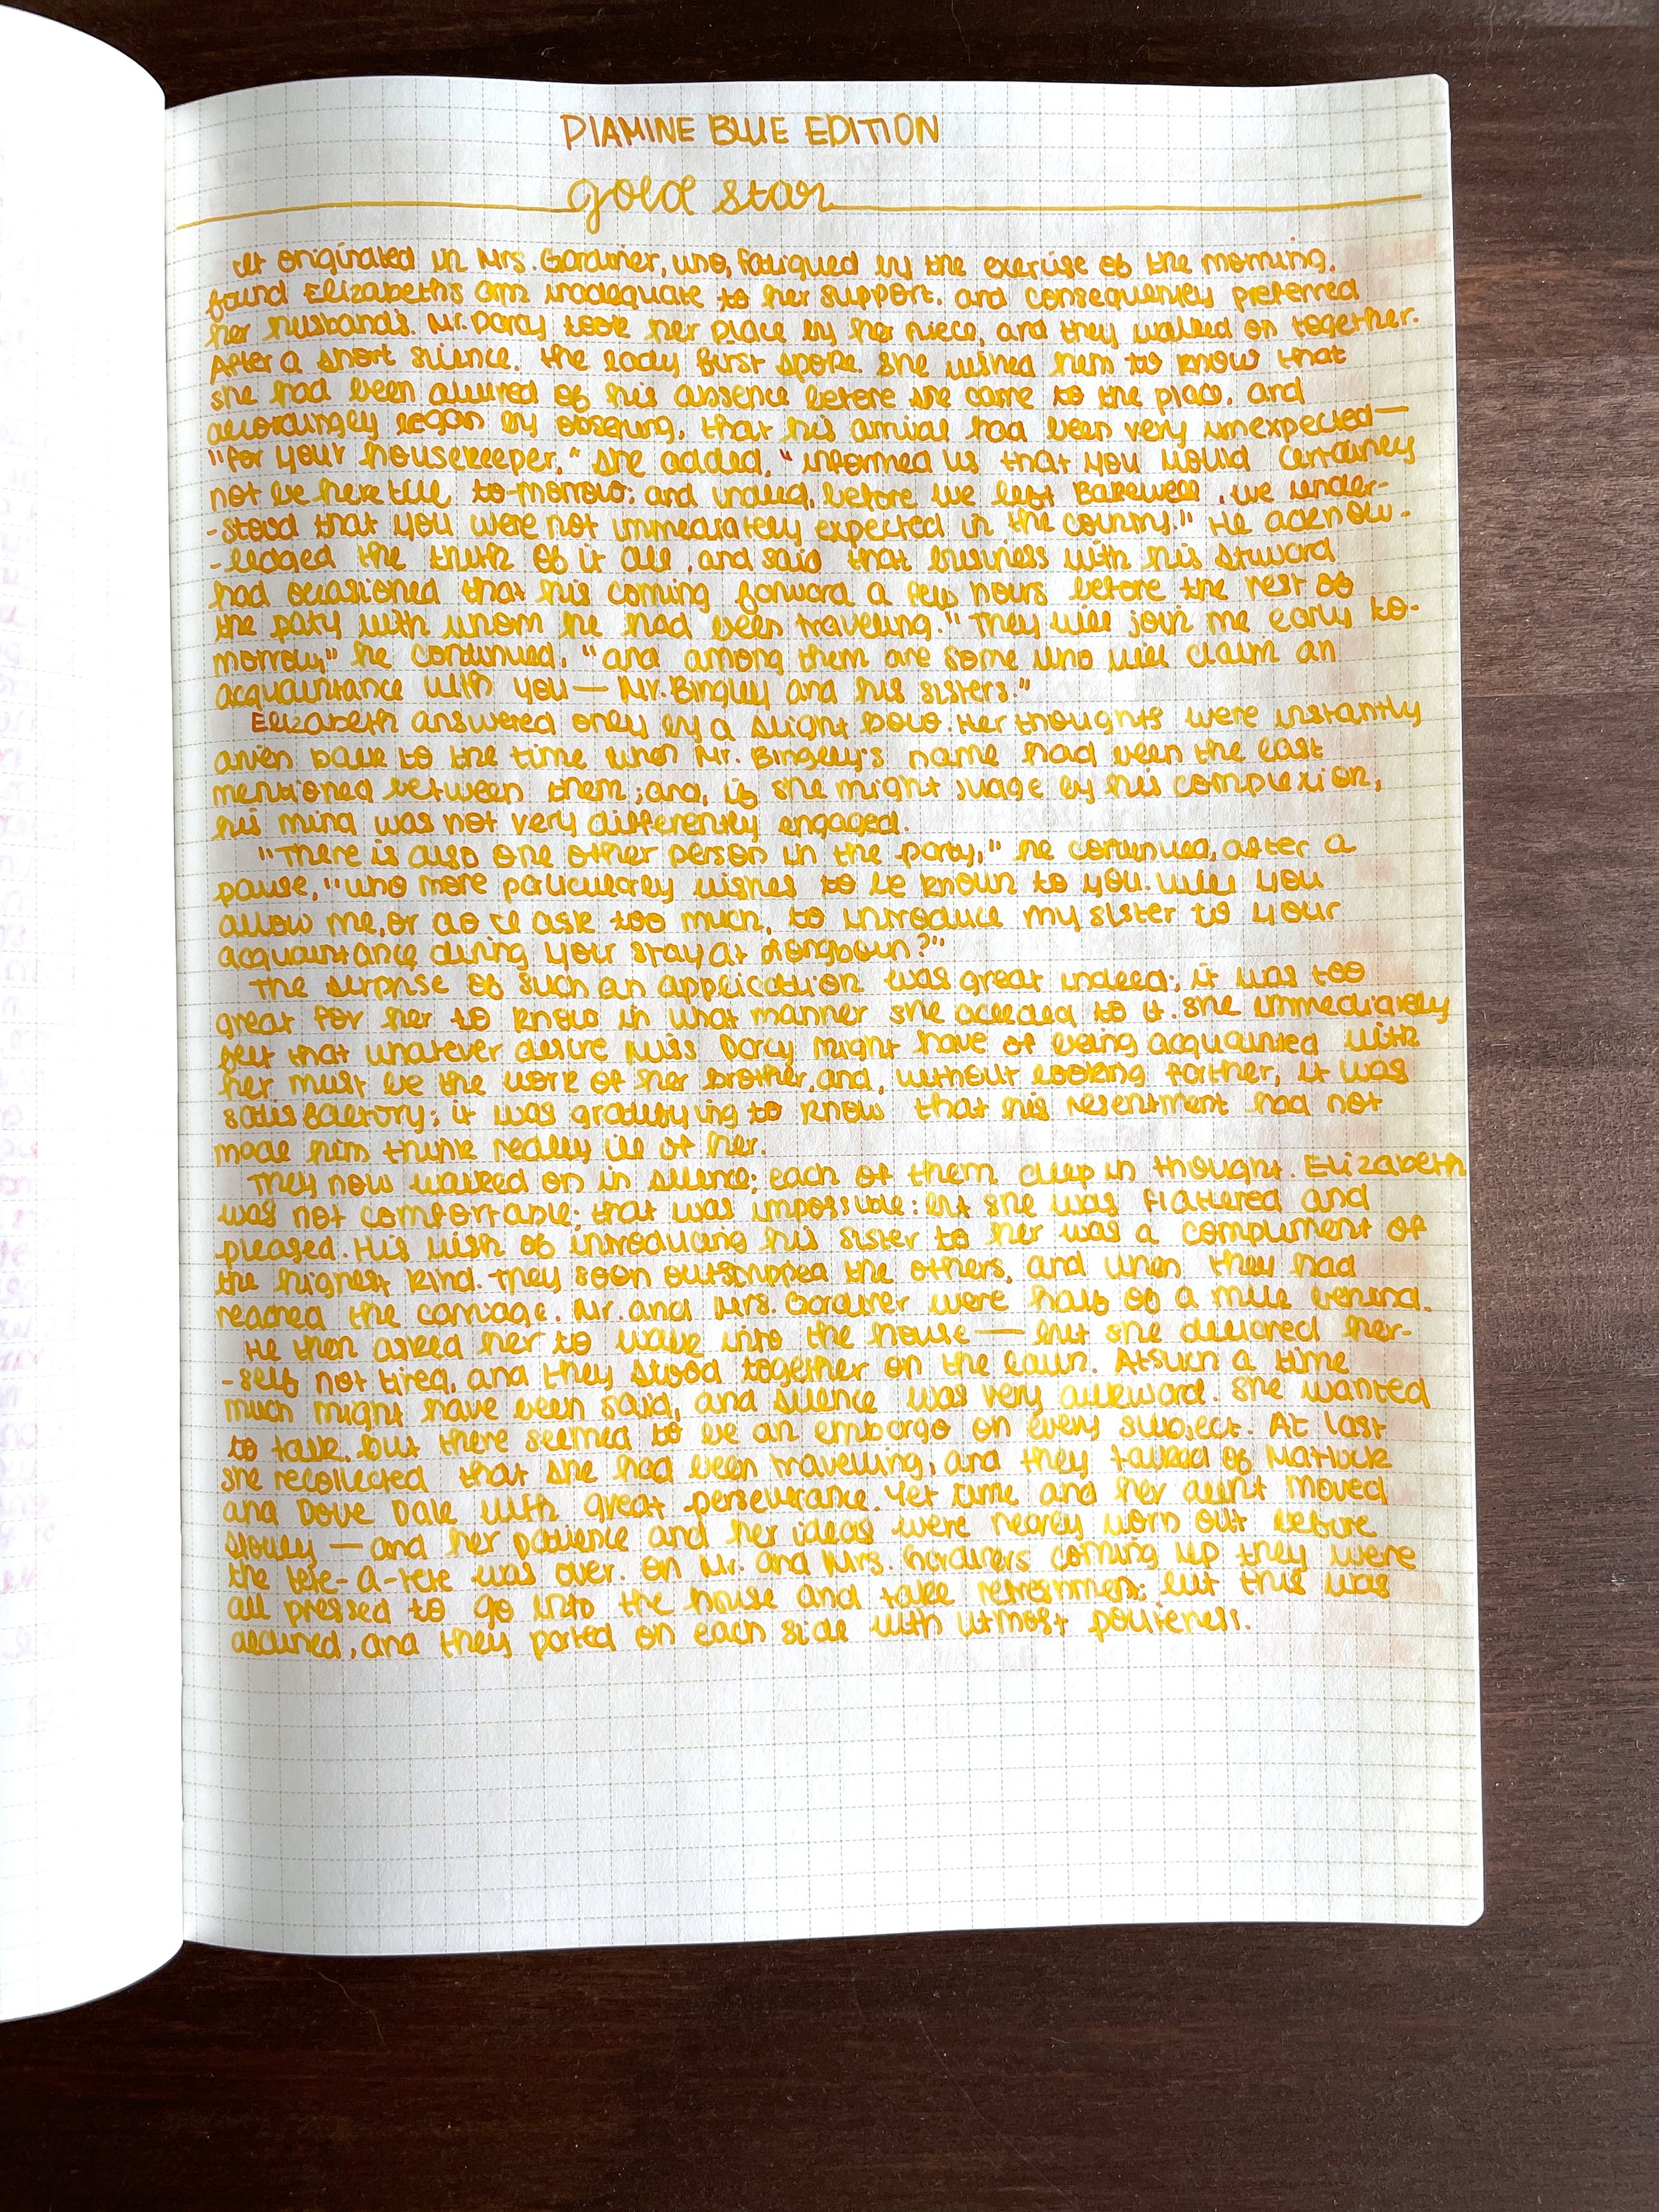 DIAMINE BLUE EDITION
gold star
It originated in Mrs. Gardiner, who, fatigued by the exercise of the morning,
found Elizabeth's arm inadequate to her support, and consequently preferred
her husband's. Mr. Darcy took her place by her niece, and they walked on together.
After a short silence, the lady first spoke. She wished him to know that
she had been assured of his absence before she came to the place, and
accordingly began by observing, that his arrival had been very unexpected—
"for your housekeeper," she added, "informed us that you would certainly
not be here till to-morrow; and indeed, before we left Bakewell, we under-
-stood that you were not immediately expected in the country." He acknow-
-ledged the truth of it all, and said that business with his steward
had occasioned that his coming forward a few hours before the rest of
the paty with whom he had been traveling. "They will join me early to-
morrow," he continued, "and among them are some who will claim an
acquaintance with you — Mr. Bingley and his sisters."
Elizabeth answered only by a slight bow. Her thoughts were instantly
driven back to the time when Mr. Bingley's name had been the last
mentioned between them; and, if she might judge by his complexion,
his mind was not very differently engaged.
"There is also one other person in the party," he continued, after a
pause, "who more paticularly wishes to be known to you. Will you
allow me, or do I ask too much, to introduce my sister to your
acquaintance during your stay at Longbourn?"
The surprise of such an application was great indeed; it was too
great for her to know in what manner she acceded to it. She immediately
felt that whatever desire Miss Darcy might have of being acquainted with
her must be the work of her brother, and, without looking farther, it was
satisfactory; it was gratifying to know that his resentment had not
made him think really ill of her.
They now walked on in silence; each of them deep in thought. Elizabeth
was not comfortable; that was impossible; but she was flattered and
pleased. His wish of introducing his sister to her was a compliment of
the highest kind. They soon outstripped the others, and when they had
reached the carriage, Mr. and Mrs. Gardiner were half of a mile behind.
He then asked her to walk into the house — but she declared her-
-self not tired, and they stood together on the lawn. At such a time
much might have been said, and silence was very awkward. She wanted
to talk, but there seemed to be an embargo on every subject. At last
she recollected that she had been travelling, and they talked of Matlock
and Dove Dale with great perseverance. Yet time and her aunt moved
slowly — and her patience and her ideas were nearly worn out before
the tete-a-tete was over. On Mr. and Mrs. Gardiners coming up they were
all pressed to go into the house and take refreshment; but this was
declined, and they parted on each side with utmost politeness.